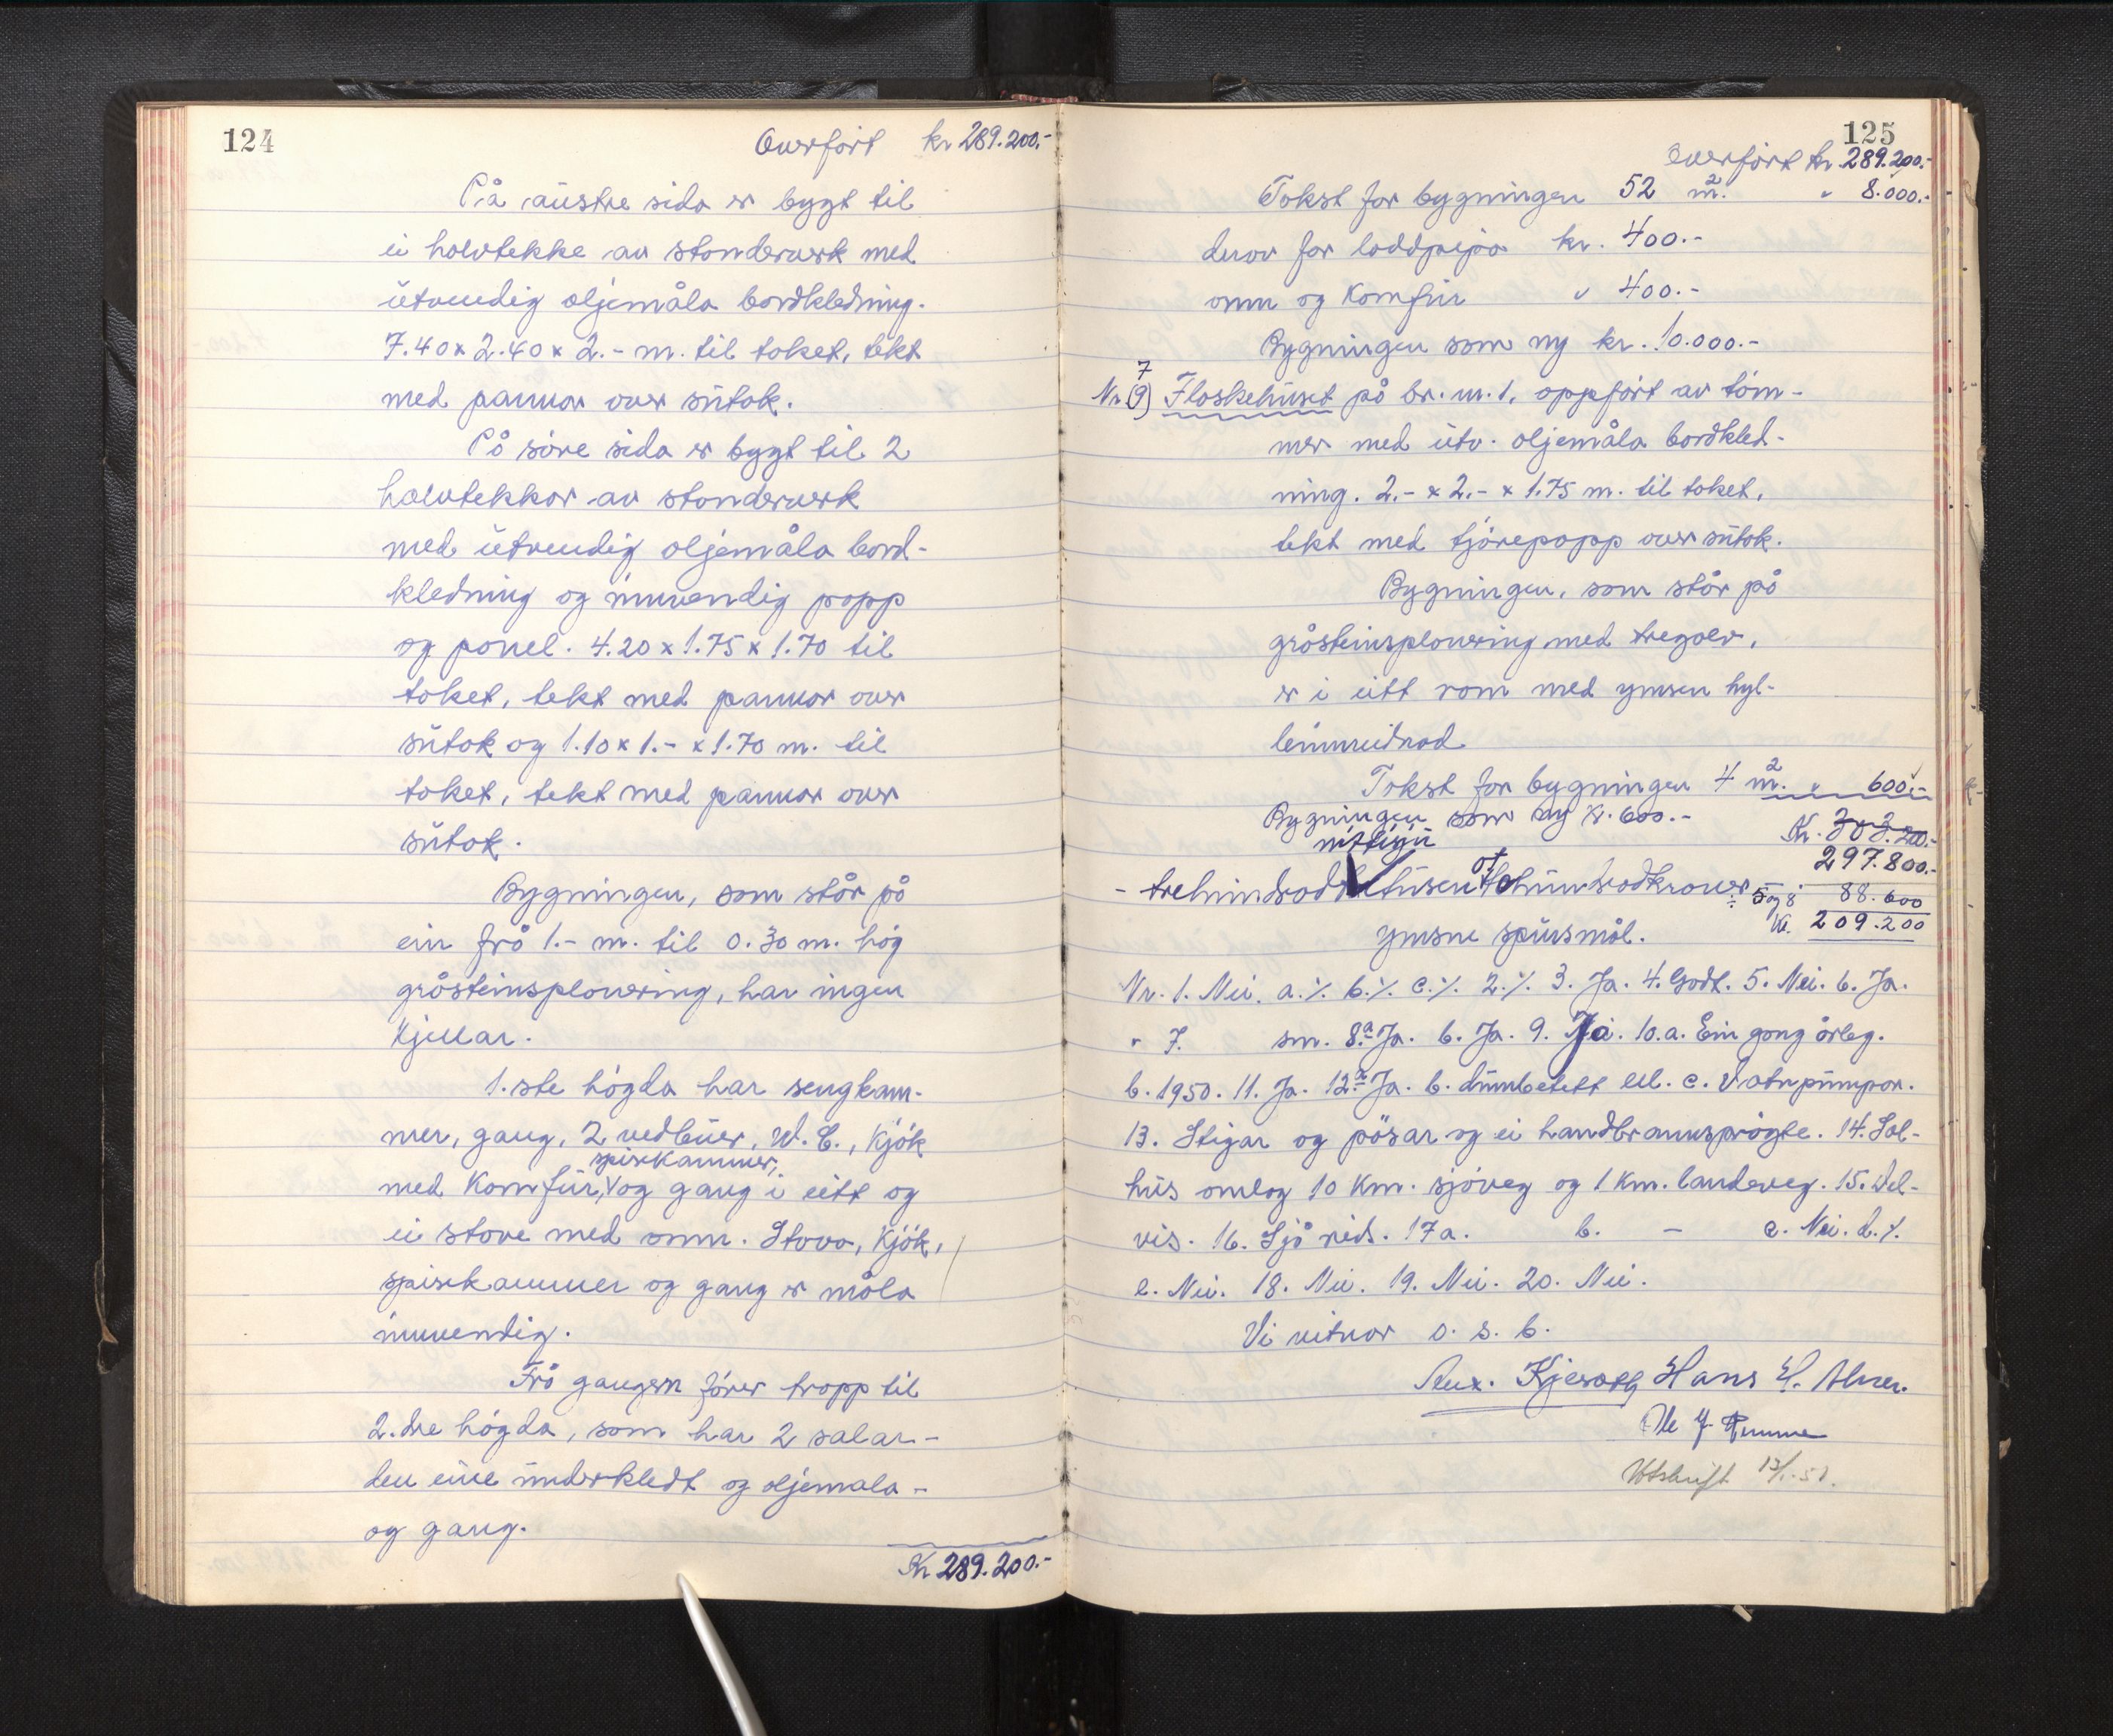 124
Overført kr 289.200.-
På austre sida er bygt til
ei halvtekke av standerverk med
utvendig oljemåla bordkledning.
7.40 x 2.40 x 2.- m. til taket, tekt
med pannor over sutak.
På søre sida er bygt til 2
halvtekkor av standerverk
med utvendig oljemåla bord-
kledning og innvendig papp
og panel. 4.20 x 1.75 x 1.70 til
taket, tekt med pannor over
sutak og 1.10 x 1.- x 1.70 m. til
taket, tekt med pannor over
sutak.
Bygningen, som står på
ein frå 1.- m. til 0.30 m. høg
gråsteinsplanering, har ingen
Kjellar.
1.ste høgda har sengkam-
mer, gang, 2 vedbuer, W.C., Kjøk
spiskammer,
med Komfur, og gang i eitt og
ei stove med omn. Stova, Kjøk,
spiskammer og gang er måla
innvendig.
Frå gangen fører tropp til
2.dre høgda, som har 2 salar -
den eine underkledt og oljemala -
og gang.
Kr 289.200.-
125
Overført kr 289.200.-
Takst for bygningen 52 m². " 8.000.-
derav for loddpipa kr. 400.-
omn og Komfur " 400.-
Bygningen som ny kr. 10.000.-
7
Nr (9) Flaskehuset på br. nr. 1, oppført av tøm-
mer med utv. oljemåla bordkled-
ning. 2.- x 2.- x 1.75 m. til taket,
tekt med tjørepapp over sutak.
Bygningen, som står på
gråsteinsplanering med tregolv,
er i eitt rom med ymsen hyl-
leinnreidnad
Takst for bygningen 4 m². " 600.-
Bygningen som ny Kr. 600.-
Kr. 303.200.-
nittisju
297.800.-
- trehundrad tusen åttehundradkroner -
÷ 5 og 8 88.600
Kr. 209.200
ymsne spursmål.
Nr. 1. Nei. a. ٪ b. ٪ c. ٪ 2. ٪ 3. Ja. 4. Godt. 5. Nei. 6. Ja.
" 7. sm. 8.a Ja. b. Ja. 9. Ja. 10.a. Ein gong årleg.
b. 1950. 11. Ja. 12.a Ja. b. c. Vatnpumpor.
13. Stigar og pösar og ei handbrannsprøyte. 14. Sol-
hus omlag 10 Km. sjøveg og 1 Km. landeveg. 15. Del-
vis. 16. Sjå nids. 17a. b. - c. Nei. d. ٪
e. Nei. 18. Nei. 19. Nei. 20. Nei.
Vi vitnar o. s. b.
Hans H.
Utskrift 13/1-51.